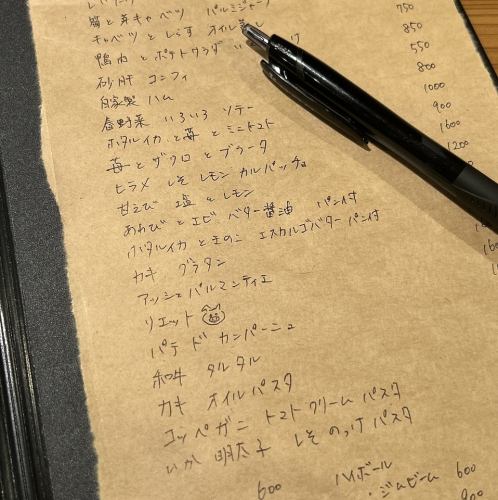 芽キャベツ パルミジャーノ
キャベツ と しらす オイル蒸し 750
鴨肉 と ポテトサラダ 850
砂肝 コンフィ 550
自家製 ハム 800
春野菜 いろいろ ソテー 1000
ホタルイカ と 苺 と ミニトマト 900
苺 と ザクロ と ブラータ 1600
ヒラメ しそ レモン カルパッチョ 1200
甘えび 塩 と レモン
あわび と エビ バター 醤油 パン付
ホタルイカ と きのこ エスカルゴバター パン付
カキ グラタン
アッシェ パルマンティエ
リエット
パテ ド カンパーニュ
和牛 タルタル
カキ オイル パスタ
コッペガニ トマト クリーム パスタ
いか 明太子 しそ のっけ パスタ
600 ハイボール
ジムビーム 600